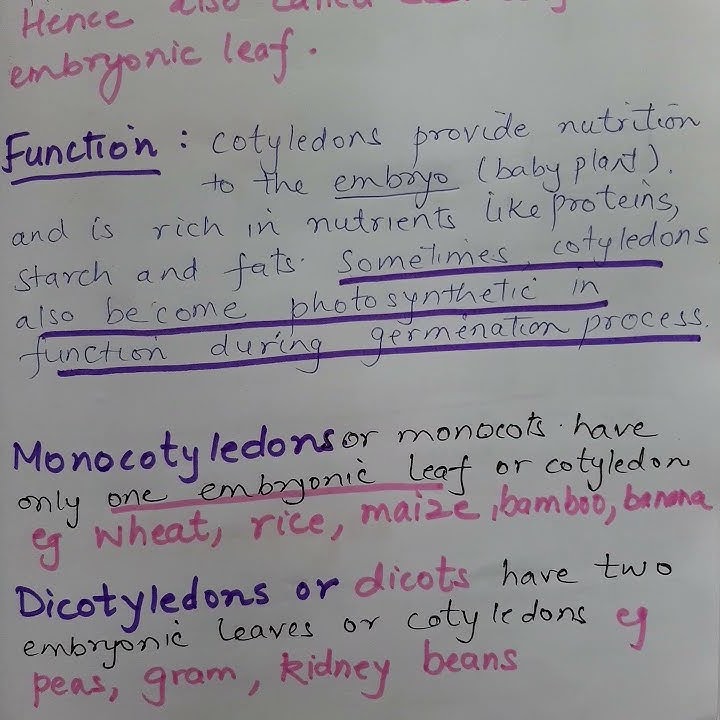 Hence also called
embryonic leaf.
Function : cotyledons provide nutrition
to the embryo (baby plant).
and is rich in nutrients like proteins,
starch and fats. Sometimes, cotyledons
also become photosynthetic in
function during germenation process.
Monocotyledons or monocots have
only one embryonic leaf or cotyledon
eg wheat, rice, maize, bamboo, banana
Dicotyledons or dicots have two
embryonic leaves or cotyledons eg
peas, gram, kidney beans